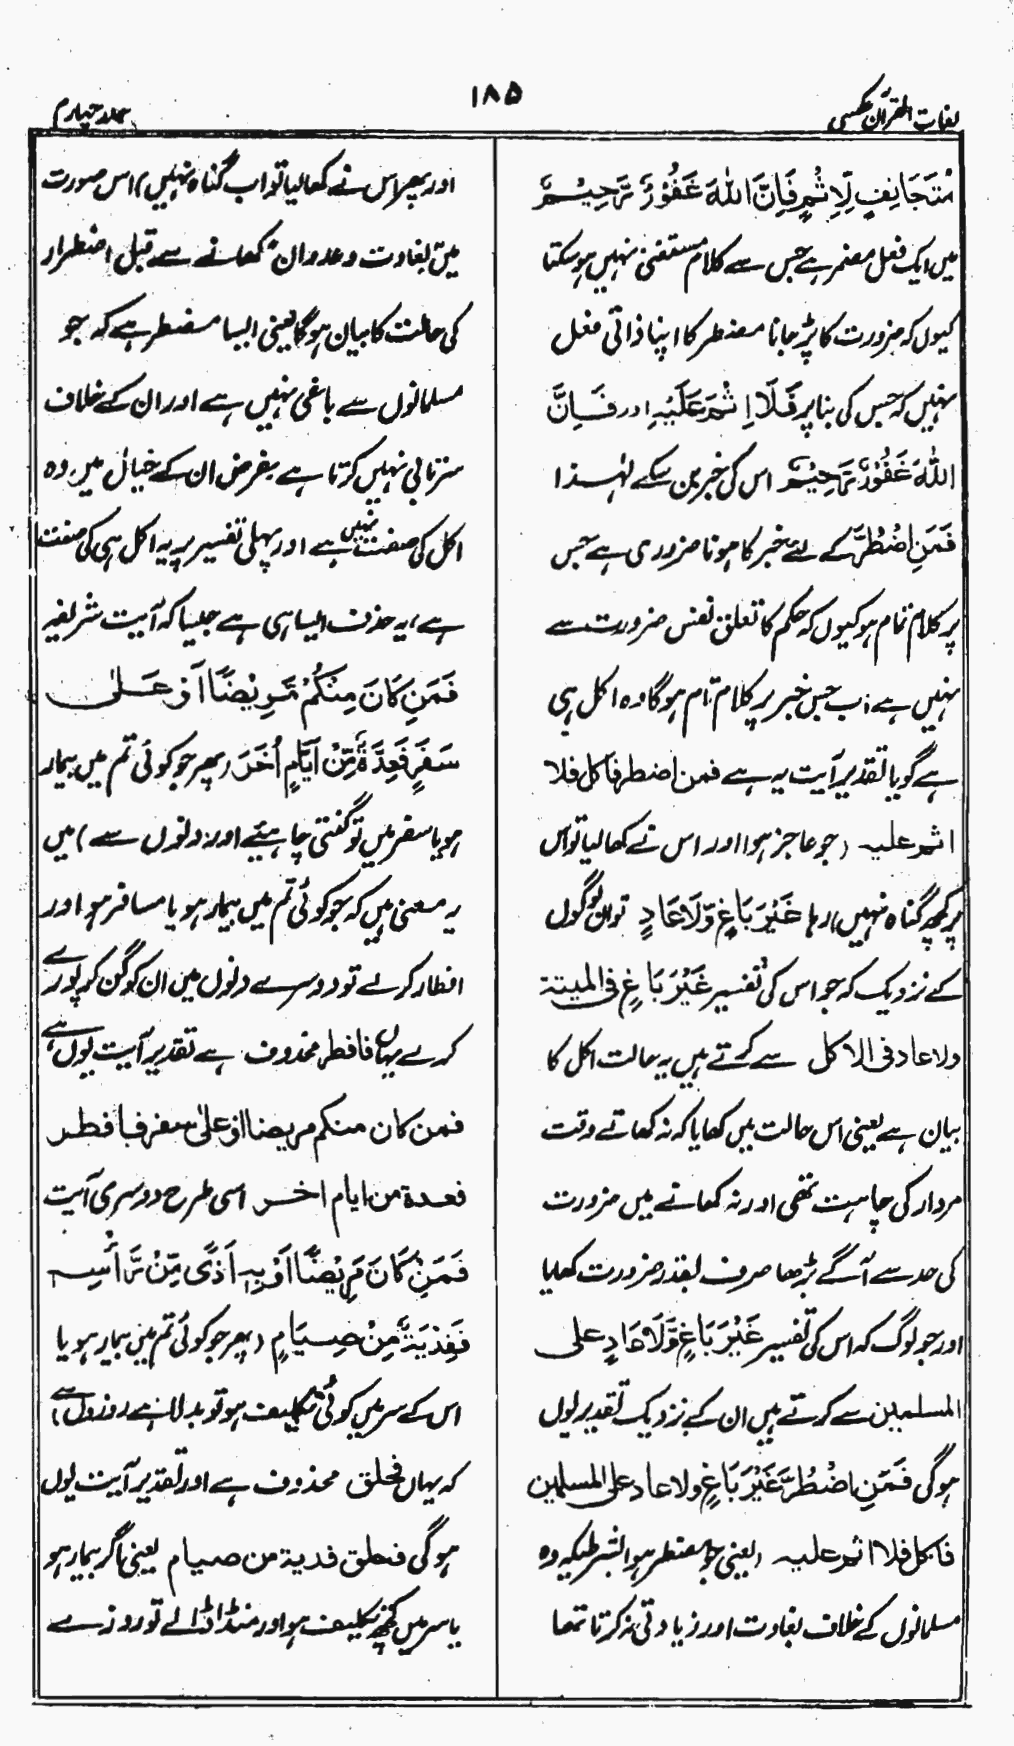 لغات القرآن عکسی
۱۸۵
جلد چہارم
مُتَجَانِفٍ لِّاِثْمٍ فَاِنَّ اللّٰهَ غَفُوْرٌ رَّحِیْمٌ
میں ایک فعل مضمر ہے جس سے کلام مستغنی نہیں ہو سکتا
کیوں کہ ضرورت کا پڑ جانا مضطر کا اپنا ذاتی فعل
نہیں کہ جس کی بنا پر فَلَآ اِثْمَ عَلَیْهِ اور فَاِنَّ
اللّٰهَ غَفُوْرٌ رَّحِیْمٌ اس کی خبر بن سکے لہٰذا
فَمَنِ اضْطُرَّ کے لئے خبر کا ہونا ضروری ہے جس
پر کلام تمام ہو کیوں کہ حکم کا تعلق نفس ضرورت سے
نہیں ہے اب جس خبر پر کلام تام ہوگا وہ اکل ہی
ہے گویا تقدیر آیت یہ ہے فمن اضطر فاکل فلا
اثم علیہ (جو عاجز ہوا اور اس نے کھا لیا تو اس
پر کچھ گناہ نہیں) رہا غَیْرَ بَاغٍ وَّلَا عَادٍ تو ان لوگوں
کے نزدیک کہ جو اس کی تفسیر غَیْرَ بَاغٍ فی المیتۃ
ولا عاد فی الاکل سے کرتے ہیں یہ حالت اکل کا
بیان ہے یعنی اس حالت میں کھایا کہ نہ کھاتے وقت
مردار کی چاہت تھی اور نہ کھانے میں ضرورت
کی حد سے آگے بڑھا صرف بقدر ضرورت کھایا
اور جو لوگ کہ اس کی تفسیر غَیْرَ بَاغٍ وَّلَا عَادٍ علی
المسلمین سے کرتے ہیں ان کے نزدیک تقدیر یوں
ہوگی فَمَنِ اضْطُرَّ غَیْرَ بَاغٍ ولا عاد علی المسلمین
فاکل فلا اثم علیہ (یعنی جو مضطر ہوا بشرطیکہ وہ
مسلمانوں کے خلاف بغاوت اور زیادتی نہ کرتا تھا
اور پھر اس نے کھا لیا تو اب گناہ نہیں) اس صورت
میں بغاوت و عدوان کھانے سے قبل اضطرار
کی حالت کا بیان ہوگا یعنی ایسا مضطر ہے کہ جو
مسلمانوں سے باغی نہیں ہے اور ان کے خلاف
سرتابی نہیں کرتا ہے بغرض ان کے خیال میں وہ
اکل کی صفت نہیں ہے اور پہلی تفسیر پر یہ اکل ہی کی صفت
ہے، یہ حذف ایسا ہی ہے جیسا کہ آیت شریفہ
فَمَنِ کَانَ مِنْکُمْ مَّرِیْضًا اَوْ عَلٰی
سَفَرٍ فَعِدَّةٌ مِّنْ اَیَّامٍ اُخَرَ (پھر جو کوئی تم میں بیمار
ہو یا سفر میں تو گنتی چاہیئے اور دنوں سے) میں
یہ معنی ہیں کہ جو کوئی تم میں بیمار ہو یا مسافر ہو اور
افطار کرلے تو دوسرے دنوں میں ان کو گن کر پورے
کرے یہاں فافطر محذوف ہے تقدیر آیت یوں ہے
فمن کان منکم مریضا او علٰی سفر فافطر
فعدۃ من ایام اخر اسی طرح دوسری آیت
فَمَنْ کَانَ مَرِیْضًا اَوْ بِهٖ اَذًی مِّنْ رَّاْسِهٖ
فَفِدْیَةٌ مِّنْ صِیَامٍ (پھر جو کوئی تم میں بیمار ہو یا
اس کے سر میں کوئی تکلیف ہو تو بدلا ہے روزوں سے)
کہ یہاں فحلق محذوف ہے اور تقدیر آیت یوں
ہوگی فحلق فدیۃ من صیام یعنی اگر بیمار ہو
یا سر میں کچھ تکلیف ہو اور منڈا ڈالے تو روزے